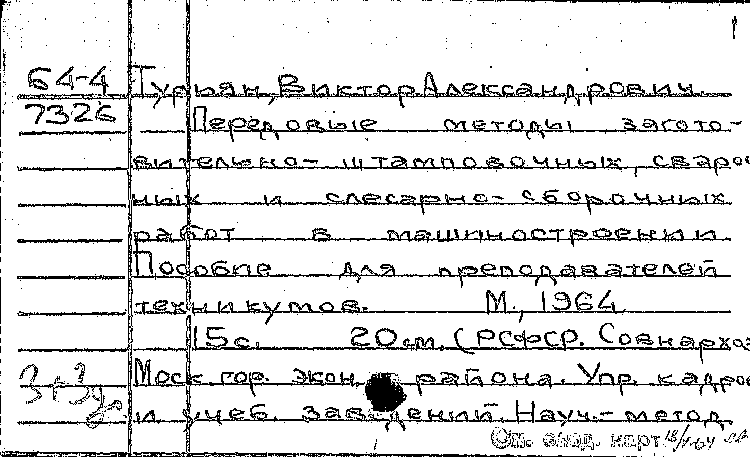 1
64-4 Турьян, Виктор Александрович.
7326 Передовые методы загото-
вительно-штамповочных, сваро
ных и слесарно-сборочных
работ в машиностроении
Пособие для преподавателей
техникумов. М., 1964
15с. 20см. (РСФСР. Совнархоз
Моск. гор. экон. района. Упр. кадро
и учеб. заведений. Науч.-метод.